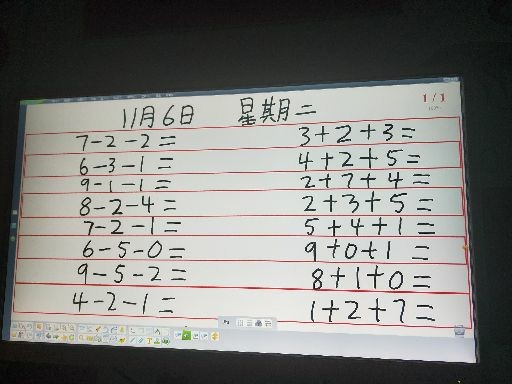 11月6日 星期二 1/1
7-2-2= 3+2+3=
6-3-1= 4+2+5=
9-1-1= 2+7+4=
8-2-4= 2+3+5=
7-2-1= 5+4+1=
6-5-0= 9+0+1=
9-5-2= 8+1+0=
4-2-1= 1+2+7=